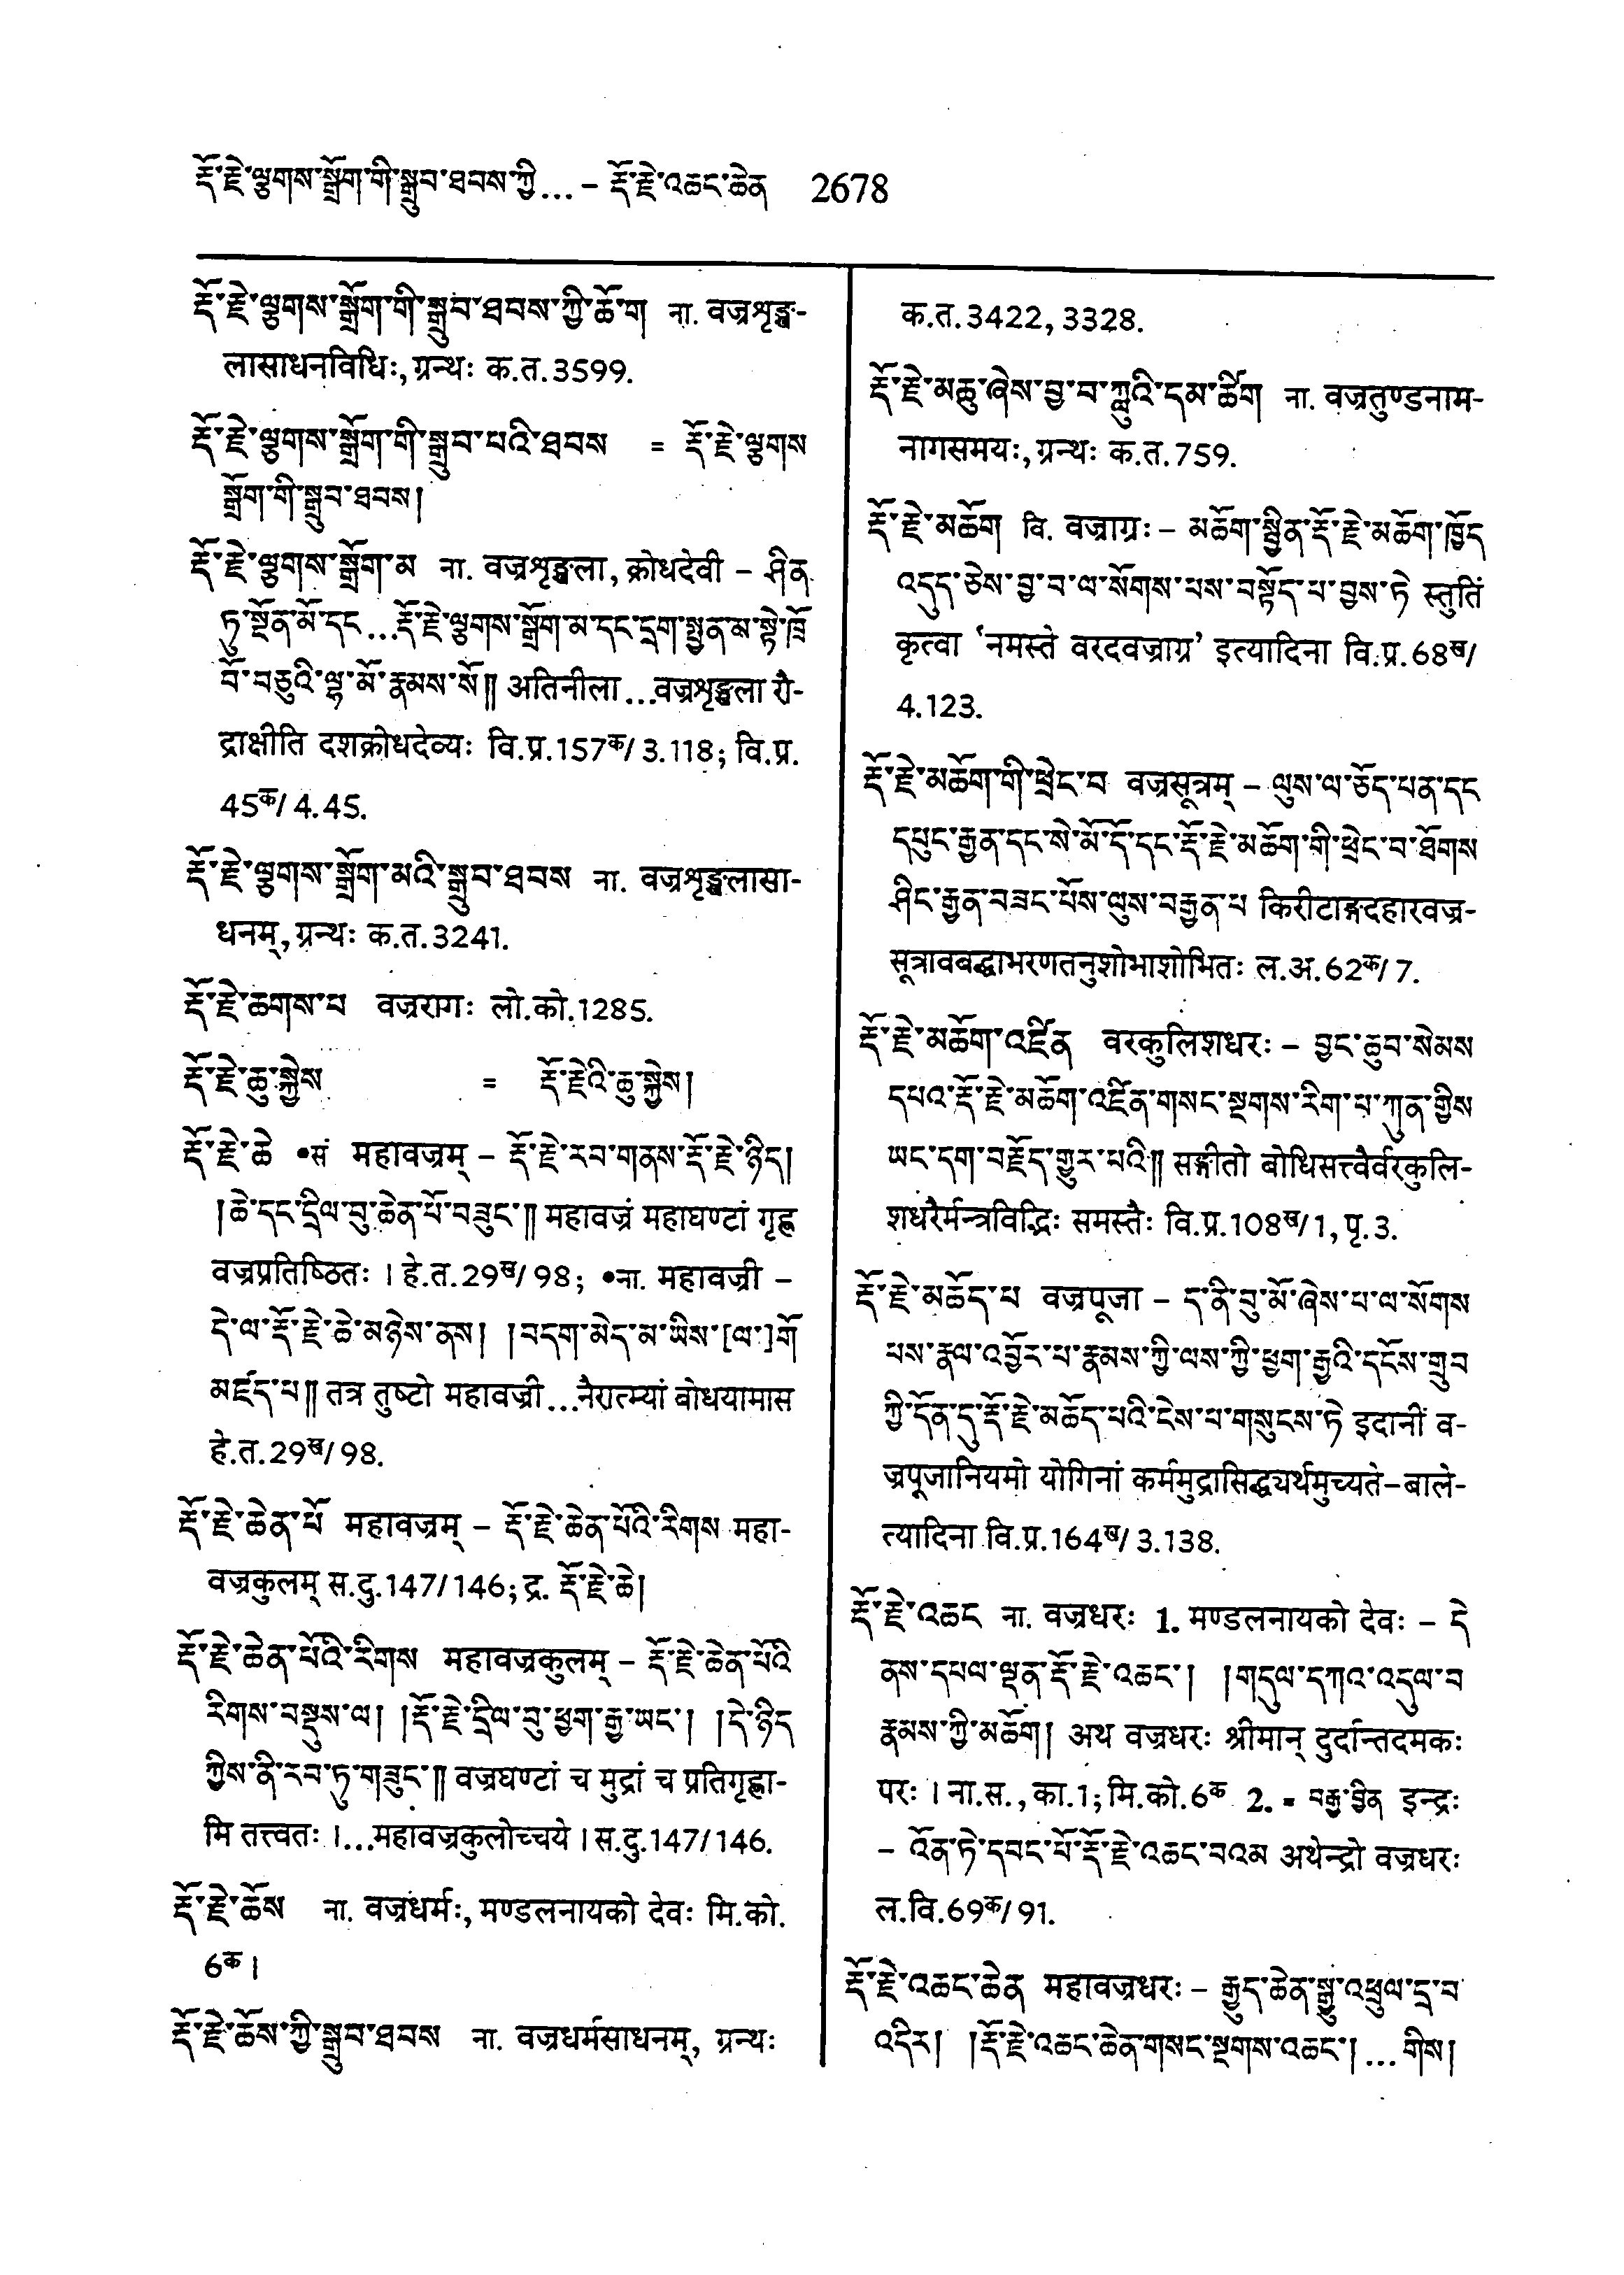 རྡོ་རྗེ་ལྕགས་སྒྲོག་གི་སྒྲུབ་ཐབས་ཀྱི... – རྡོ་རྗེ་འཆང་ཆེན 2678
རྡོ་རྗེ་ལྕགས་སྒྲོག་གི་སྒྲུབ་ཐབས་ཀྱི་ཆོ་ག ना. वज्रशृङ्ख-
लासाधनविधिः, ग्रन्थः क.त.3599.
རྡོ་རྗེ་ལྕགས་སྒྲོག་གི་སྒྲུབ་པའི་ཐབས = རྡོ་རྗེ་ལྕགས
སྒྲོག་གི་སྒྲུབ་ཐབས།
རྡོ་རྗེ་ལྕགས་སྒྲོག་མ ना. वज्रशृङ्खला, क्रोधदेवी – ཤིན
ཏུ་སྔོན་མོ་དང...རྡོ་རྗེ་ལྕགས་སྒྲོག་མ་དང་དྲག་སྤྱན་མ་སྟེ་ཁྲོ
བོ་བཅུའི་ལྷ་མོ་རྣམས་སོ༎ अतिनीला...वज्रशृङ्खला रौ-
द्राक्षीति दशक्रोधदेव्यः वि.प्र.157क/3.118; वि.प्र.
45क/4.45.
རྡོ་རྗེ་ལྕགས་སྒྲོག་མའི་སྒྲུབ་ཐབས ना. वज्रशृङ्खलासा-
धनम्, ग्रन्थः क.त.3241.
རྡོ་རྗེ་ཆགས་པ वज्ररागः लो.को.1285.
རྡོ་རྗེ་ཆུ་སྐྱེས = རྡོ་རྗེའི་ཆུ་སྐྱེས།
རྡོ་རྗེ་ཆེ •सं महावज्रम् – རྡོ་རྗེ་རབ་གནས་རྡོ་རྗེ་ཉིད།
།ཆེ་དང་དྲིལ་བུ་ཆེན་པོ་བཟུང་༎ महावज्रं महाघण्टां गृह्ण
वज्रप्रतिष्ठितः । हे.त.29ख/98; •ना. महावज्री –
དེ་ལ་རྡོ་རྗེ་ཆེ་མཉེས་ནས། །བདག་མེད་མ་ཡིས་[ལ་]གོ
མཛད་པ༎ तत्र तुष्टो महावज्री...नैरात्म्यां बोधयामास
हे.त.29ख/98.
རྡོ་རྗེ་ཆེན་པོ महावज्रम् – རྡོ་རྗེ་ཆེན་པོའི་རིགས महा-
वज्रकुलम् स.दु.147/146; द्र. རྡོ་རྗེ་ཆེ།
རྡོ་རྗེ་ཆེན་པོའི་རིགས महावज्रकुलम् – རྡོ་རྗེ་ཆེན་པོའི
རིགས་བསྡུས་ལ། །རྡོ་རྗེ་དྲིལ་བུ་ཕྱག་རྒྱ་ཡང་། །དེ་ཉིད
ཀྱིས་ནི་རབ་ཏུ་གཟུང་༎ वज्रघण्टां च मुद्रां च प्रतिगृह्णा-
मि तत्त्वतः ।...महावज्रकुलोच्चये । स.दु.147/146.
རྡོ་རྗེ་ཆོས ना. वज्रधर्मः, मण्डलनायको देवः मि.को.
6क ।
རྡོ་རྗེ་ཆོས་ཀྱི་སྒྲུབ་ཐབས ना. वज्रधर्मसाधनम्, ग्रन्थः
क.त.3422, 3328.
རྡོ་རྗེ་མཆུ་ཞེས་བྱ་བ་ཀླུའི་དམ་ཚིག ना. वज्रतुण्डनाम-
नागसमयः, ग्रन्थः क.त.759.
རྡོ་རྗེ་མཆོག वि. वज्राग्रः – མཆོག་སྦྱིན་རྡོ་རྗེ་མཆོག་ཁྱོད
འདུད་ཅེས་བྱ་བ་ལ་སོགས་པས་བསྟོད་པ་བྱས་ཏེ स्तुतिं
कृत्वा ‘नमस्ते वरदवज्राग्र’ इत्यादिना वि.प्र.68ख/
4.123.
རྡོ་རྗེ་མཆོག་གི་ཕྲེང་བ वज्रसूत्रम् – ལུས་ལ་ཅོད་པན་དང
དཔུང་རྒྱན་དང་སེ་མོ་དོ་དང་རྡོ་རྗེ་མཆོག་གི་ཕྲེང་བ་ཐོགས
ཤིང་རྒྱན་བཟང་པོས་ལུས་བརྒྱན་པ किरीटाङ्गदहारवज्र-
सूत्रावबद्धाभरणतनुशोभाशोभितः ल.अ.62क/7.
རྡོ་རྗེ་མཆོག་འཛིན वरकुलिशधरः – བྱང་ཆུབ་སེམས
དཔའ་རྡོ་རྗེ་མཆོག་འཛིན་གསང་སྔགས་རིག་པ་ཀུན་གྱིས
ཡང་དག་བརྗོད་གྱུར་པའི༎ सङ्गीतो बोधिसत्त्वैर्वरकुलि-
शधरैर्मन्त्रविद्भिः समस्तैः वि.प्र.108ख/1, पृ.3.
རྡོ་རྗེ་མཆོད་པ वज्रपूजा – ད་ནི་བུ་མོ་ཞེས་པ་ལ་སོགས
པས་རྣལ་འབྱོར་པ་རྣམས་ཀྱི་ལས་ཀྱི་ཕྱག་རྒྱའི་དངོས་གྲུབ
ཀྱི་དོན་དུ་རྡོ་རྗེ་མཆོད་པའི་ངེས་པ་གསུངས་ཏེ इदानीं व-
ज्रपूजानियमो योगिनां कर्ममुद्रासिद्ध्यर्थमुच्यते–बाले-
त्यादिना वि.प्र.164ख/3.138.
རྡོ་རྗེ་འཆང ना. वज्रधरः 1. मण्डलनायको देवः – དེ
ནས་དཔལ་ལྡན་རྡོ་རྗེ་འཆང་། །གདུལ་དཀའ་འདུལ་བ
རྣམས་ཀྱི་མཆོག། अथ वज्रधरः श्रीमान् दुर्दान्तदमकः
परः । ना.स., का.1; मि.को.6क 2. = བརྒྱ་བྱིན इन्द्रः
– འོན་ཏེ་དབང་པོ་རྡོ་རྗེ་འཆང་བའམ अथेन्द्रो वज्रधरः
ल.वि.69क/91.
རྡོ་རྗེ་འཆང་ཆེན महावज्रधरः – རྒྱུད་ཆེན་སྒྱུ་འཕྲུལ་དྲ་བ
འདིར། །རྡོ་རྗེ་འཆང་ཆེན་གསང་སྔགས་འཆང་།... གིས།